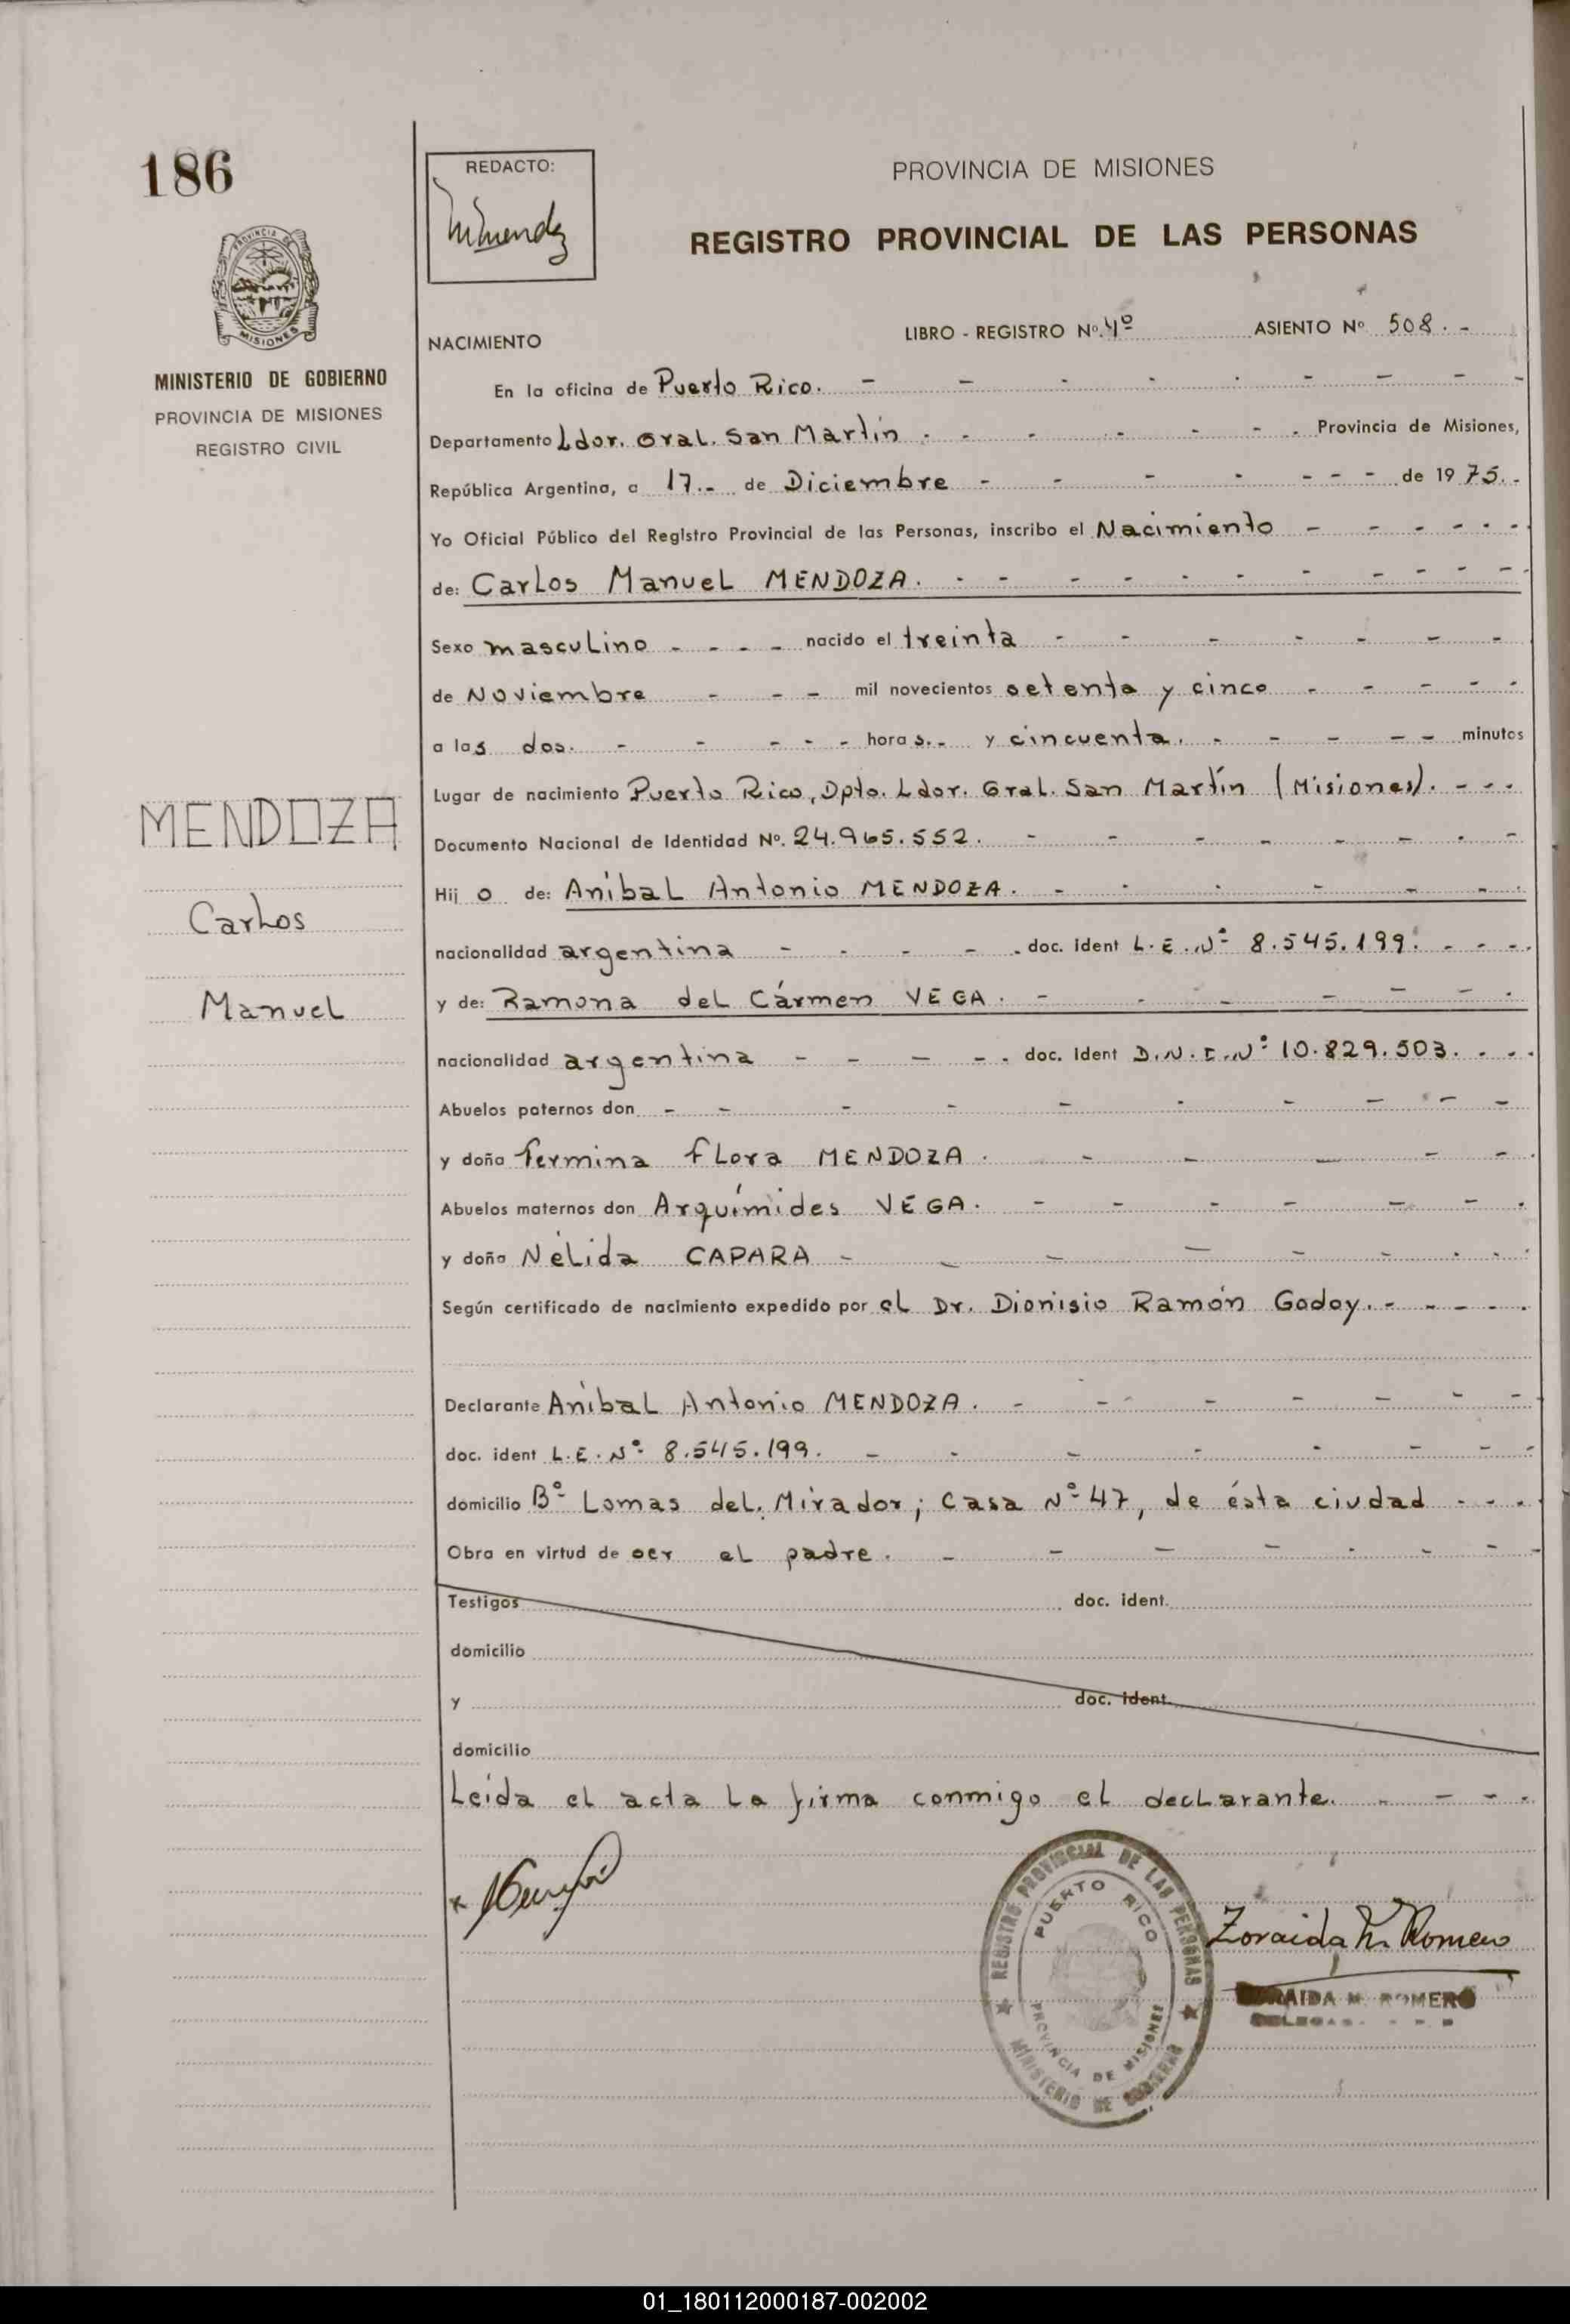 186
REDACTO:
PROVINCIA DE MISIONES
REGISTRO PROVINCIAL DE LAS PERSONAS
PROVINCIA DE
MISIONES
MINISTERIO DE GOBIERNO
PROVINCIA DE MISIONES
REGISTRO CIVIL
NACIMIENTO LIBRO - REGISTRO Nº. 4º ASIENTO Nº 508. -
En la oficina de Puerto Rico. - - - - - - - - -
Departamento Ldor. Gral. San Martín . - - - - - . Provincia de Misiones,
República Argentina, a 17.- de Diciembre - - - - - - - de 1975. -
Yo Oficial Público del Registro Provincial de las Personas, inscribo el Nacimiento - - - - - -
de: Carlos Manuel MENDOZA. - - - - - - - - - - - -
Sexo masculino - - - - nacido el treinta - - - - - - -
de Noviembre - - - mil novecientos setenta y cinco - - - - -
a las dos. - - - - - horas.- y cincuenta. - - - - - minutos
Lugar de nacimiento Puerto Rico, Dpto. Ldor. Gral. San Martín (Misiones). - - -
Documento Nacional de Identidad Nº. 24.965.552. - - - - - - - -
Hijo de: Aníbal Antonio MENDOZA. - - - - - - -
nacionalidad argentina - - - - . doc. ident L.E.Nº 8.545.199. - - - -
y de: Ramona del Cármen VEGA. - - - - - - -
nacionalidad argentina - - - - . doc. ident D.N.I.Nº 10.829.503. - - -
Abuelos paternos don - - - - - - - - - -
y doña Fermina Flora MENDOZA . - - - - - -
Abuelos maternos don Arquímides VEGA. - - - - - - -
y doña Nélida CAPARA - - - - - - - - -
Según certificado de nacimiento expedido por el Dr. Dionisio Ramón Godoy. - - - - -
Declarante Aníbal Antonio MENDOZA. - - - - - - -
doc. ident L.E.Nº 8.545.199. - - - - - - - -
domicilio Bº Lomas del Mirador; Casa Nº 47, de ésta ciudad - - - -
Obra en virtud de ser el padre. - - - - - - - -
Testigos doc. ident.
domicilio
y doc. ident.
domicilio
Leída el acta la firma conmigo el declarante. - - - -
MENDOZA
Carlos
Manuel
REGISTRO PROVINCIAL DE LAS PERSONAS
PUERTO RICO
PROVINCIA DE MISIONES
MINISTERIO DE GOBIERNO
Zoraida M. Romero
ZORAIDA M. ROMERO
01_180112000187-002002